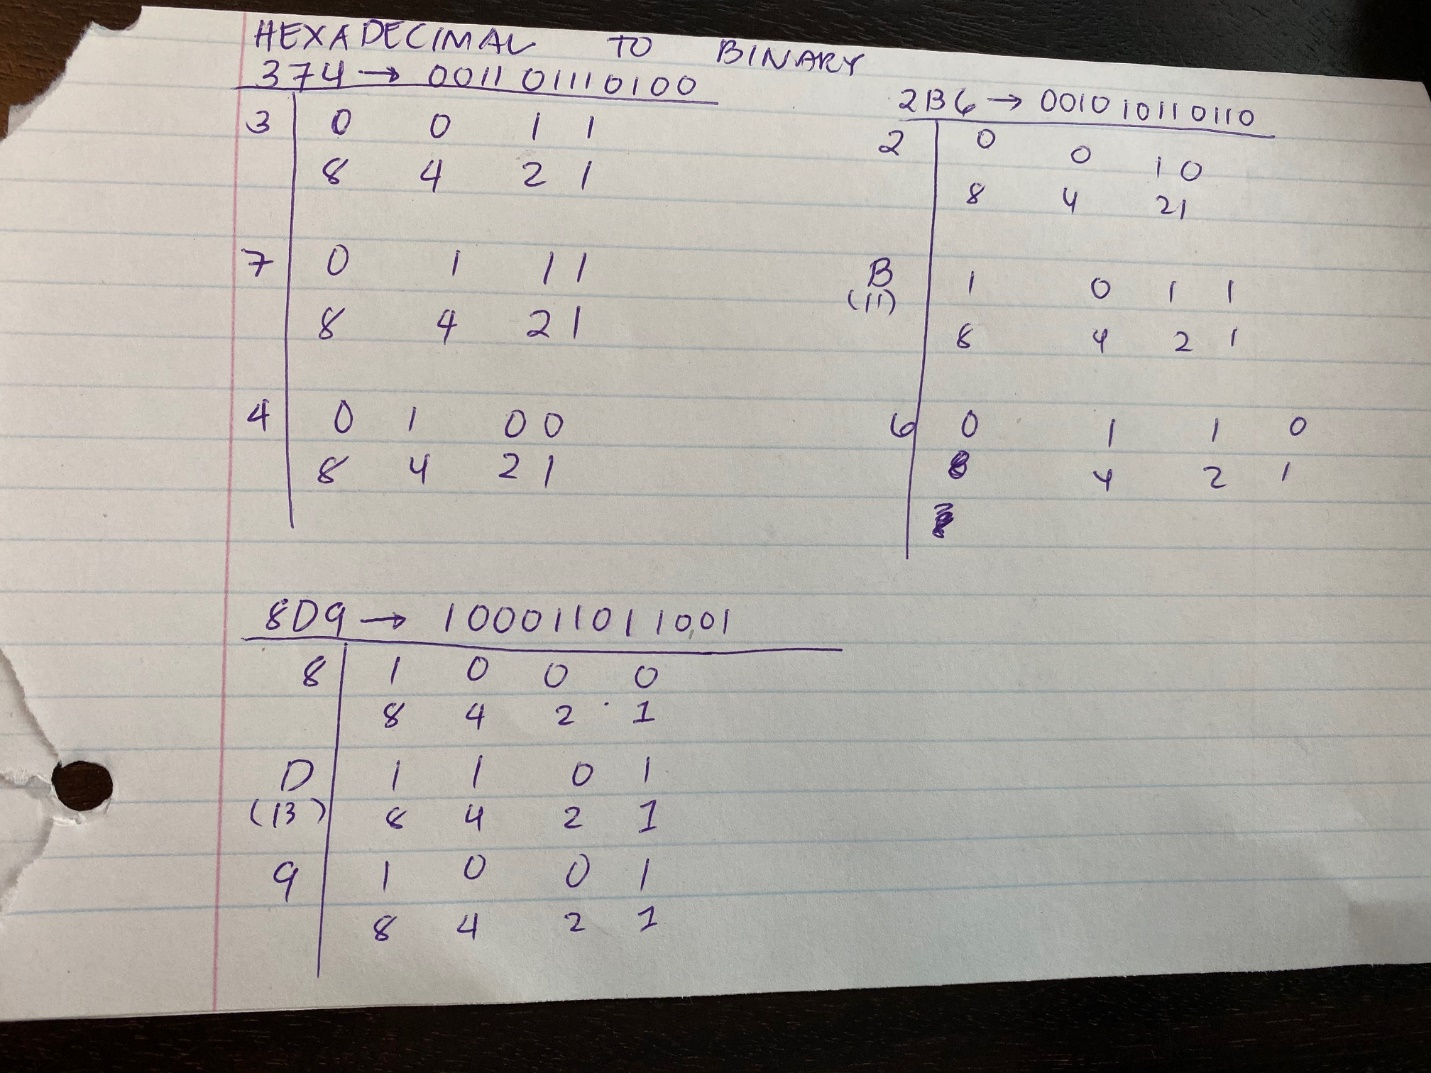 HEXADECIMAL TO BINARY
374 → 001101110100
3 0 0 1 1
8 4 2 1
7 0 1 1 1
8 4 2 1
4 0 1 0 0
8 4 2 1
2B6 → 001010110110
2 0 0 1 0
8 4 2 1
B 1 0 1 1
(11) 8 4 2 1
6 0 1 1 0
8 4 2 1
8D9 → 100011011001
8 1 0 0 0
8 4 2 1
D 1 1 0 1
(13) 8 4 2 1
9 1 0 0 1
8 4 2 1